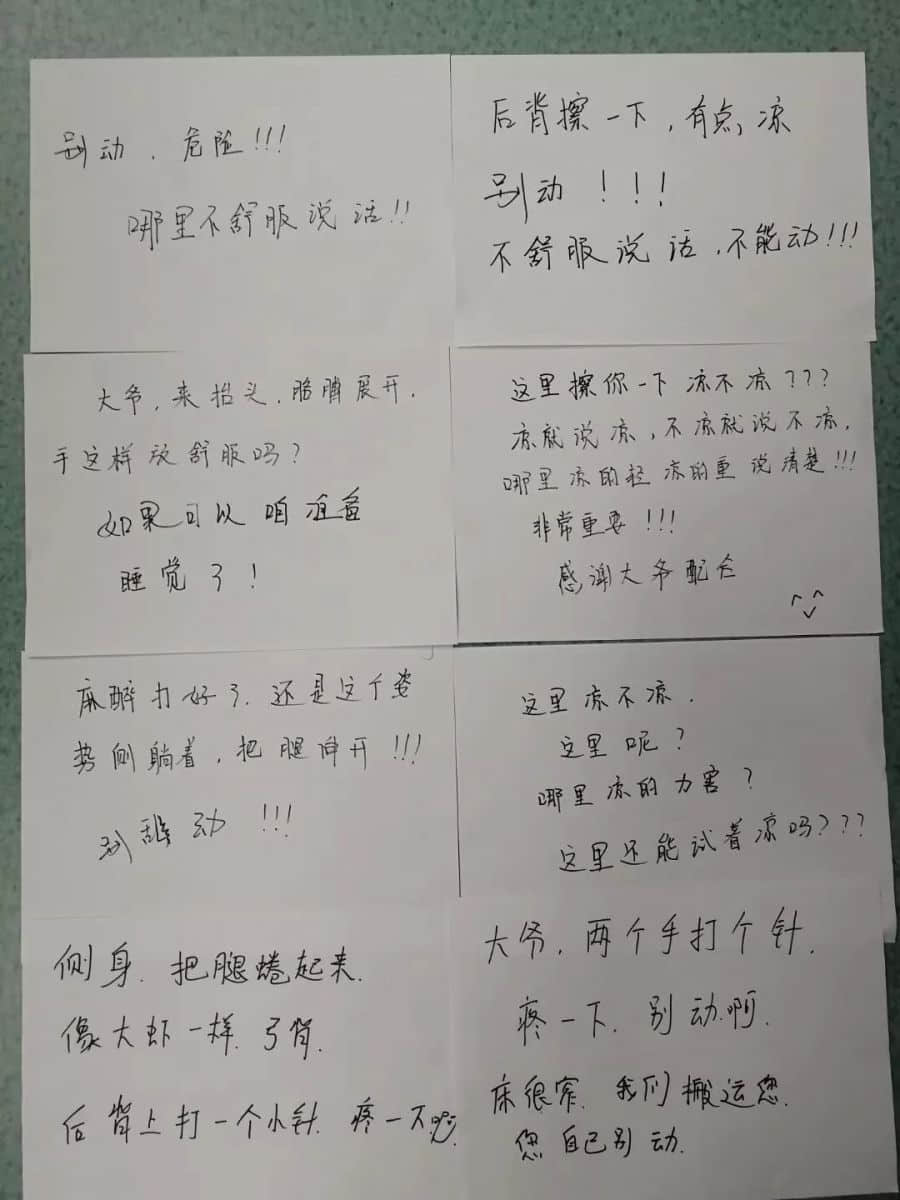 别动，危险!!!
哪里不舒服说话!!
后背擦一下，有点凉
别动！！！
不舒服说话，不能动!!!
大爷，来抬头，胳膊展开，
手这样放舒服吗？
如果可以咱准备
睡觉了！
这里擦你一下 凉不凉？？？
凉就说凉，不凉就说不凉，
哪里凉的轻 凉的重 说清楚!!!
非常重要!!!
感谢大爷配合
麻醉打好了，还是这个姿
势侧躺着，把腿伸开!!!
别乱动!!!
这里凉不凉，
这里呢？
哪里凉的力害？
这里还能试着凉吗？？？
侧身，把腿蜷起来，
像大虾一样，弓背，
后背上打一个小针，疼一下
大爷，两个手打个针，
疼一下，别动啊，
床很窄，我们搬运您，
您自己别动，